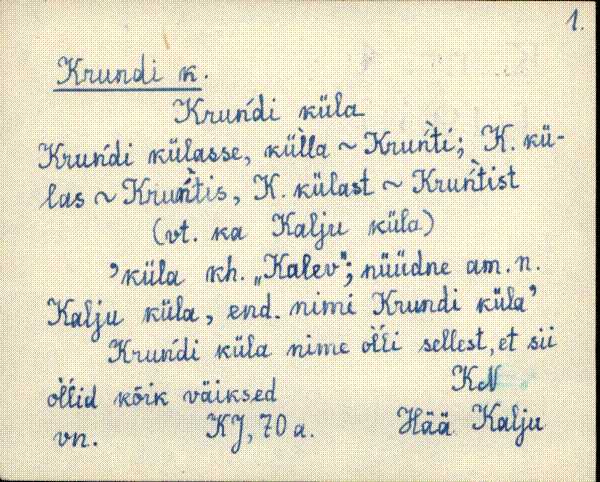 1.
Krundi k.
Kruńdi küla
Kruńdi külasse, kül̀la ~ Kruǹ́ti; K. kü-
las ~ Kruǹ́tis, K. külast ~ Kruǹ́tist
(vt. ka Kalju küla)
'küla kh. „Kalev"; nüüdne am. n.
Kalju küla, end. nimi Krundi küla'
Kruńdi küla nime ol̀́li sellest, et sii
ol̀́lid kõik väiksed KN
vn. KJ, 70 a. Hää Kalju